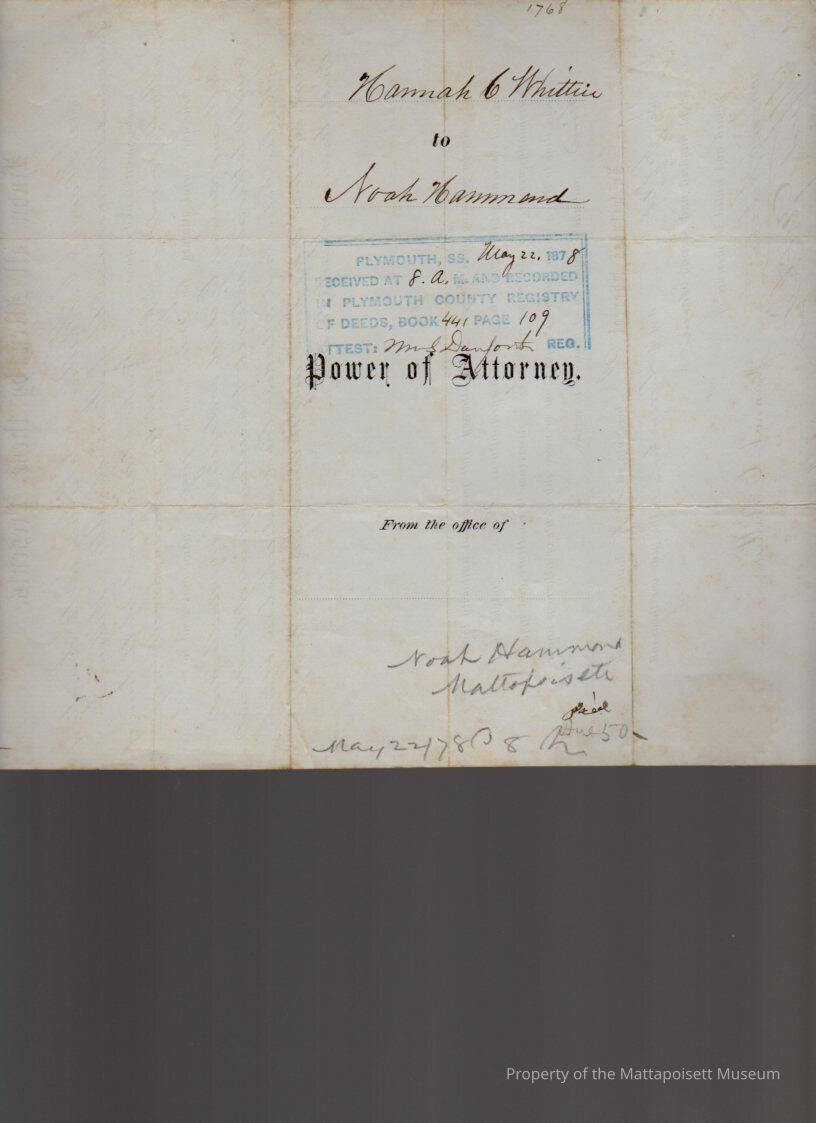 1768
Hannah C Whittier
to
Noah Hammond
PLYMOUTH, SS. May 22, 1878
ECEIVED AT 8. A. M. AND RECORDED
IN PLYMOUTH COUNTY REGISTRY
OF DEEDS, BOOK 441 PAGE 109
TTEST: Wm S Danforth REG.
Power of Attorney.
From the office of
Noah Hammond
Mattapoisett
paid
Due 50
May 22/78 8
Property of the Mattapoisett Museum